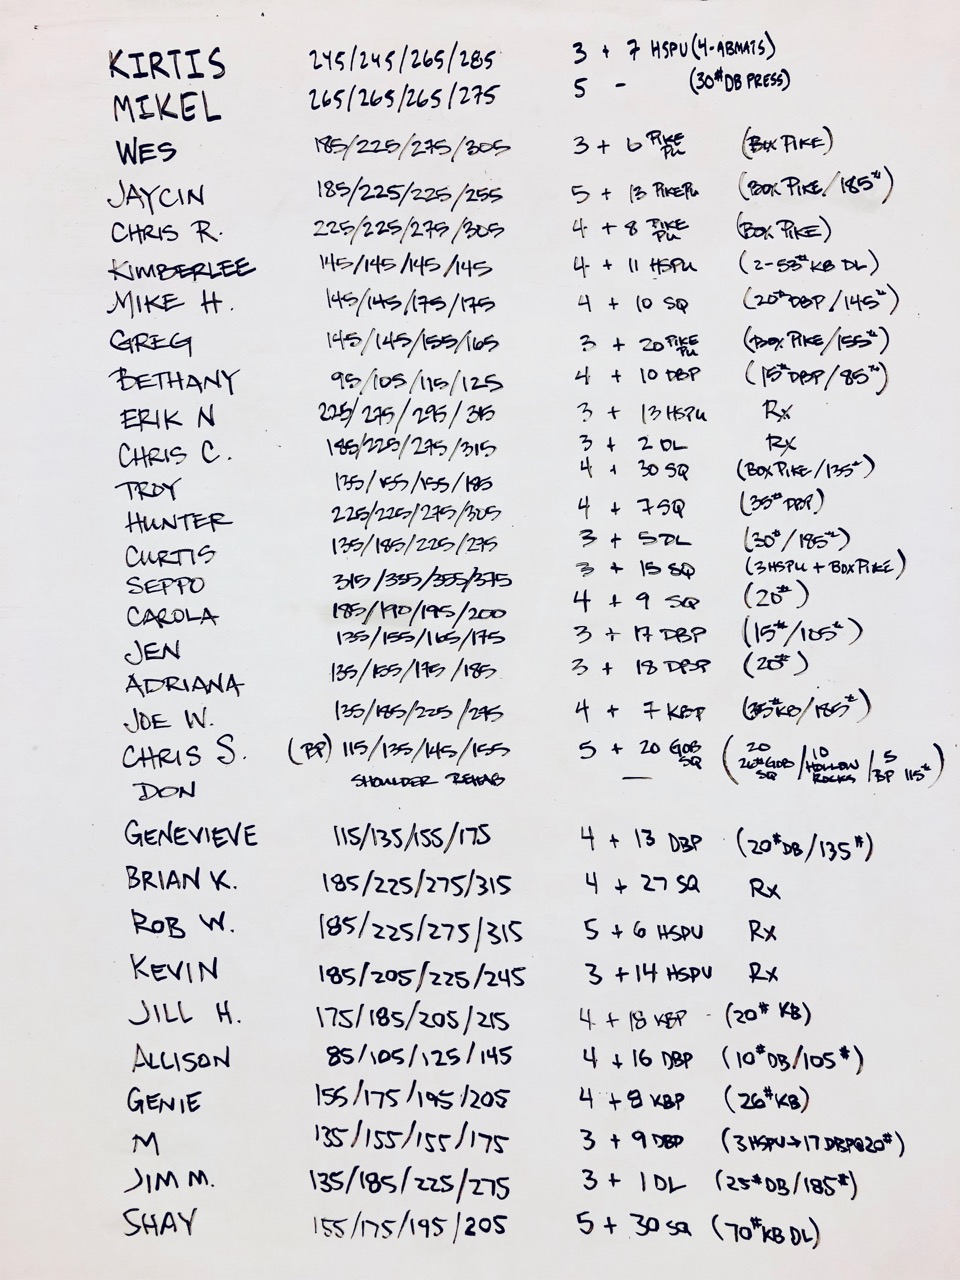 KIRTIS 245/245/265/285 3 + 7 HSPU (4-ABMATS)
MIKEL 265/265/265/275 5 - (30# DB PRESS)
WES 185/225/275/305 3 + 6 PIKE PU (BOX PIKE)
JAYCIN 185/225/225/255 5 + 13 PIKE PU (BOX PIKE/185#)
CHRIS R. 225/225/275/305 4 + 8 PIKE PU (BOX PIKE)
KIMBERLEE 145/145/145/145 4 + 11 HSPU (2-53# KB DL)
MIKE H. 145/145/175/175 4 + 10 SQ (20# DBP/145#)
GREG 145/145/155/165 3 + 20 PIKE PU (BOX PIKE/155#)
BETHANY 95/105/115/125 4 + 10 DBP (15# DBP/85#)
ERIK N 225/275/295/315 3 + 13 HSPU Rx
CHRIS C. 185/225/275/315 3 + 2 DL Rx
TROY 135/155/155/185 4 + 30 SQ (BOX PIKE/135#)
HUNTER 225/225/275/305 4 + 7 SQ (35# DBP)
CURTIS 135/185/225/275 3 + 5 DL (30#/185#)
SEPPO 315/335/355/375 3 + 15 SQ (3 HSPU + BOX PIKE)
CAROLA 185/190/195/200 4 + 9 SQ (20#)
JEN 135/155/165/175 3 + 17 DBP (15#/105#)
ADRIANA 135/155/175/185 3 + 18 DBP (20#)
JOE W. 135/185/225/275 4 + 7 KBP (35# KB/185#)
CHRIS S. (BP) 115/135/145/155 5 + 20 GOB SQ (20 26# GOB SQ/10 HOLLOW ROCKS/5 BP 115#)
DON SHOULDER REHAB —
GENEVIEVE 115/135/155/175 4 + 13 DBP (20# DB/135#)
BRIAN K. 185/225/275/315 4 + 27 SQ Rx
ROB W. 185/225/275/315 5 + 6 HSPU Rx
KEVIN 185/205/225/245 3 + 14 HSPU Rx
JILL H. 175/185/205/215 4 + 18 KBP - (20# KB)
ALLISON 85/105/125/145 4 + 16 DBP (10# DB/105#)
GENIE 155/175/195/205 4 + 8 KBP (26# KB)
M 135/155/155/175 3 + 9 DBP (3 HSPU→17 DBP@20#)
JIM M. 135/185/225/275 3 + 1 DL (25# DB/185#)
SHAY 155/175/195/205 5 + 30 SQ (70# KB DL)